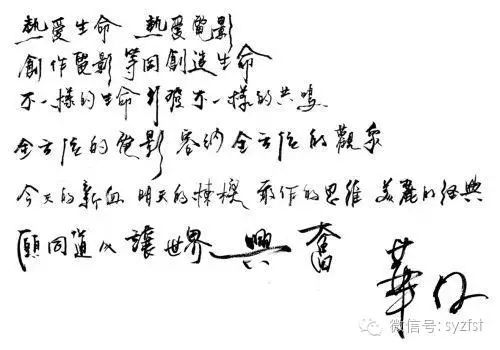 熱愛生命 熱愛電影
創作電影等同創造生命
不一樣的生命引發不一樣的共鳴
全方位的電影容納全方位的觀眾
今天的新血 明天的棟樑 敢作的思維 美麗的經典
願同道人讓世界興奮
華仔
微信号: syzfst